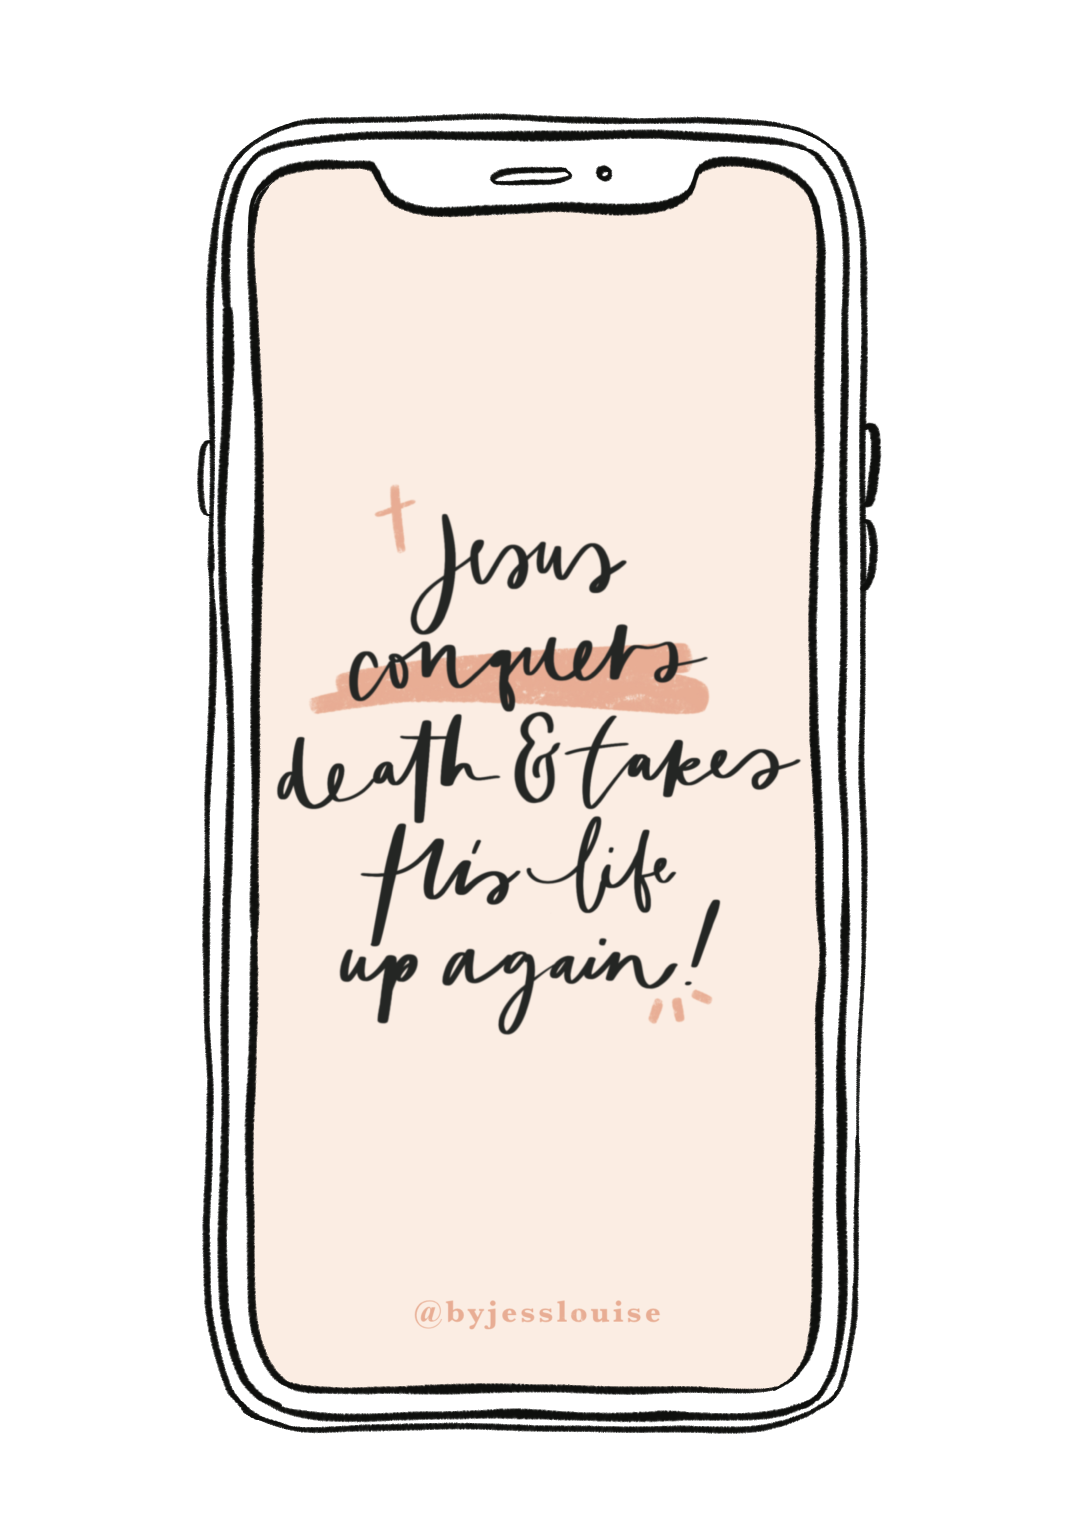 Jesus
conquers
death & takes
His life
up again!
@byjesslouise